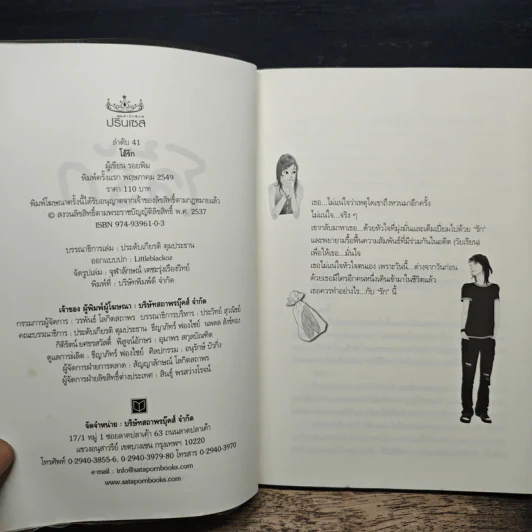 ปริ๊นเซส
ลำดับ 41
โฮ้รัก
ผู้เขียน รอยพิม
พิมพ์ครั้งแรก พฤษภาคม 2549
ราคา 110 บาท
พิมพ์โฆษณาครั้งนี้ได้รับอนุญาตจากเจ้าของลิขสิทธิ์ตามกฎหมายแล้ว
© สงวนลิขสิทธิ์ตามพระราชบัญญัติลิขสิทธิ์ พ.ศ. 2537
ISBN 974-93961-0-3
บรรณาธิการเล่ม : ประดับเกียรติ ตุมประธาน
ออกแบบปก : Littleblackoz
จัดรูปเล่ม : จุฬาลักษณ์ เดชะรุ่งเรืองวิทย์
พิมพ์ที่ : บริษัทพิมพ์ดี จำกัด
เจ้าของ ผู้พิมพ์ผู้โฆษณา : บริษัทสถาพรบุ๊คส์ จำกัด
กรรมการผู้จัดการ : วรพันธ์ โลกิตสถาพร บรรณาธิการบริหาร : ประวิทย์ สุวณิชย์
คณะบรรณาธิการ : ประดับเกียรติ ตุมประธาน ธีญาภัทร์ ฟองไชย์ นพดล สังข์ทอง
กิติรัตน์ ยศธรสวัสดิ์ พิสูจน์อักษร : อุมาพร สกุลบัณฑิต
ดูแลการผลิต : ธีญาภัทร์ ฟองไชย์ ศิลปกรรม : อนุรักษ์ บัวกิ่ง
ผู้จัดการฝ่ายการตลาด : สัญญาลักษณ์ โลกิตสถาพร
ผู้จัดการฝ่ายลิขสิทธิ์ต่างประเทศ : สินธุ์ พรสว่างโรจน์
จัดจำหน่าย : บริษัทสถาพรบุ๊คส์ จำกัด
17/1 หมู่ 1 ซอยลาดปลาเค้า 63 ถนนลาดปลาเค้า
แขวงอนุสาวรีย์ เขตบางเขน กรุงเทพฯ 10220
โทรศัพท์ 0-2940-3855-6, 0-2940-3979-80 โทรสาร 0-2940-3970
e-mail : info@satapornbooks.com
www.satapornbooks.com
เธอ...ไม่แน่ใจว่าเหตุใดเขาถึงหวนมาอีกครั้ง
ไม่แน่ใจ...จริง ๆ
เขากลับมาหาเธอ...ด้วยหัวใจที่มุ่งมั่นและเต็มเปี่ยมไปด้วย 'รัก'
และพยายามรื้อฟื้นความสัมพันธ์ที่มีร่วมกันในอดีต (วัยเรียน)
เพื่อให้เธอ...มั่นใจ
เธอไม่แน่ใจหัวใจตนเอง เพราะวันนี้...ต่างจากวันก่อน
ด้วยเธอมีใครอีกคนหนึ่งเดินเข้ามาในชีวิตแล้ว
เธอควรทำอย่างไร...กับ 'รัก' นี้